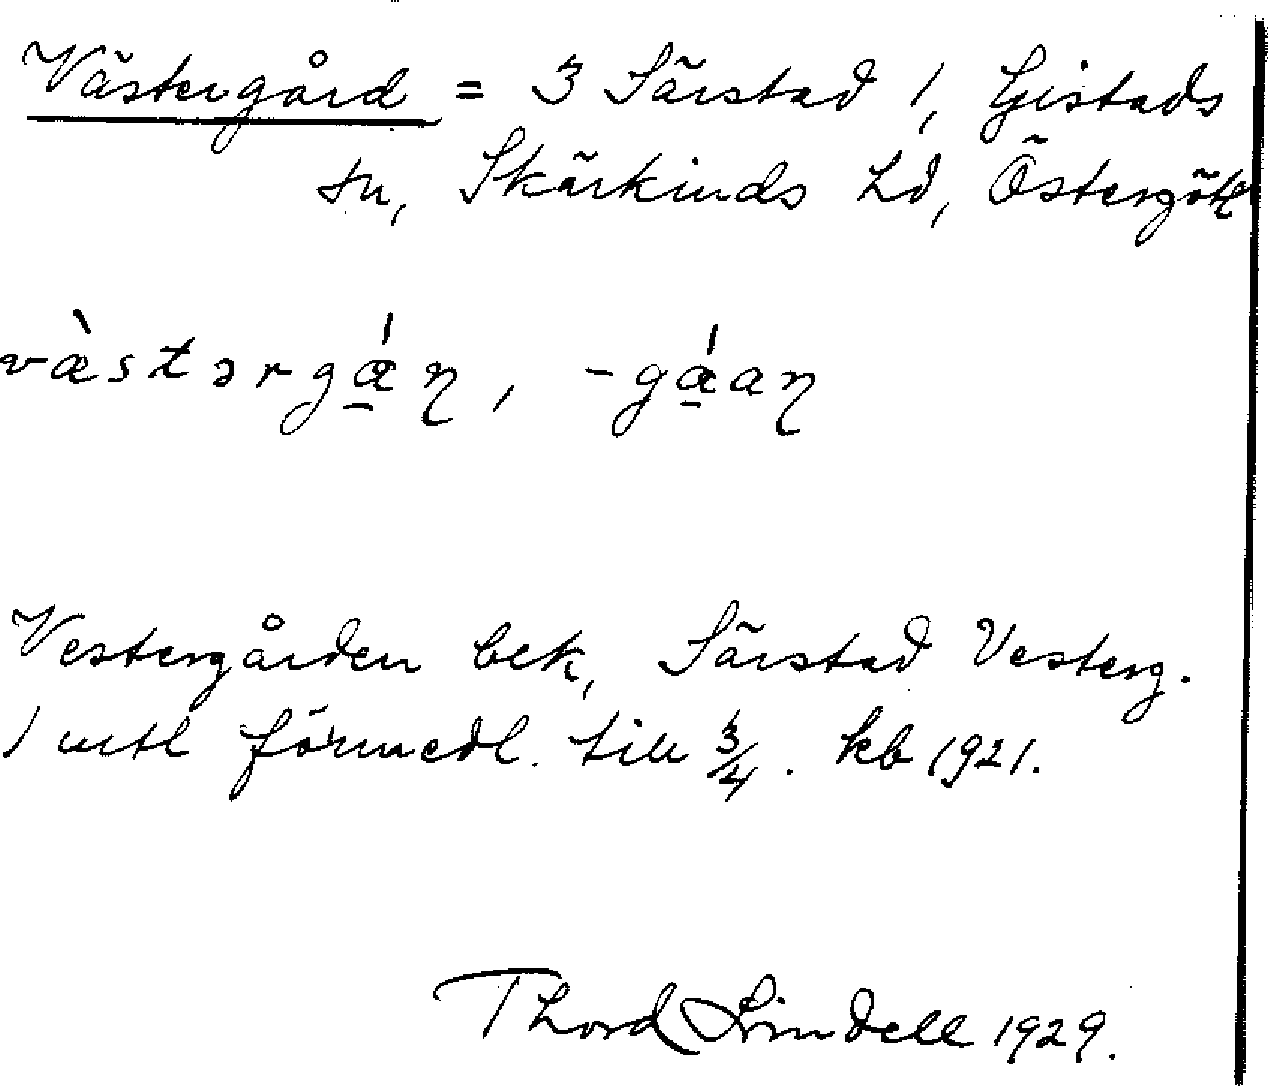 Västergård = 3 Särstad 1, Gistads
sn, Skärkinds hd, Östergötl
væ̀stərgǽ̱ɳ, -gǽ̱aɳ
Vestergården bek, Särstad Vesterg.
1 mtl förmedl. till 3/4. kb 1921.
Thord Lindell 1929.